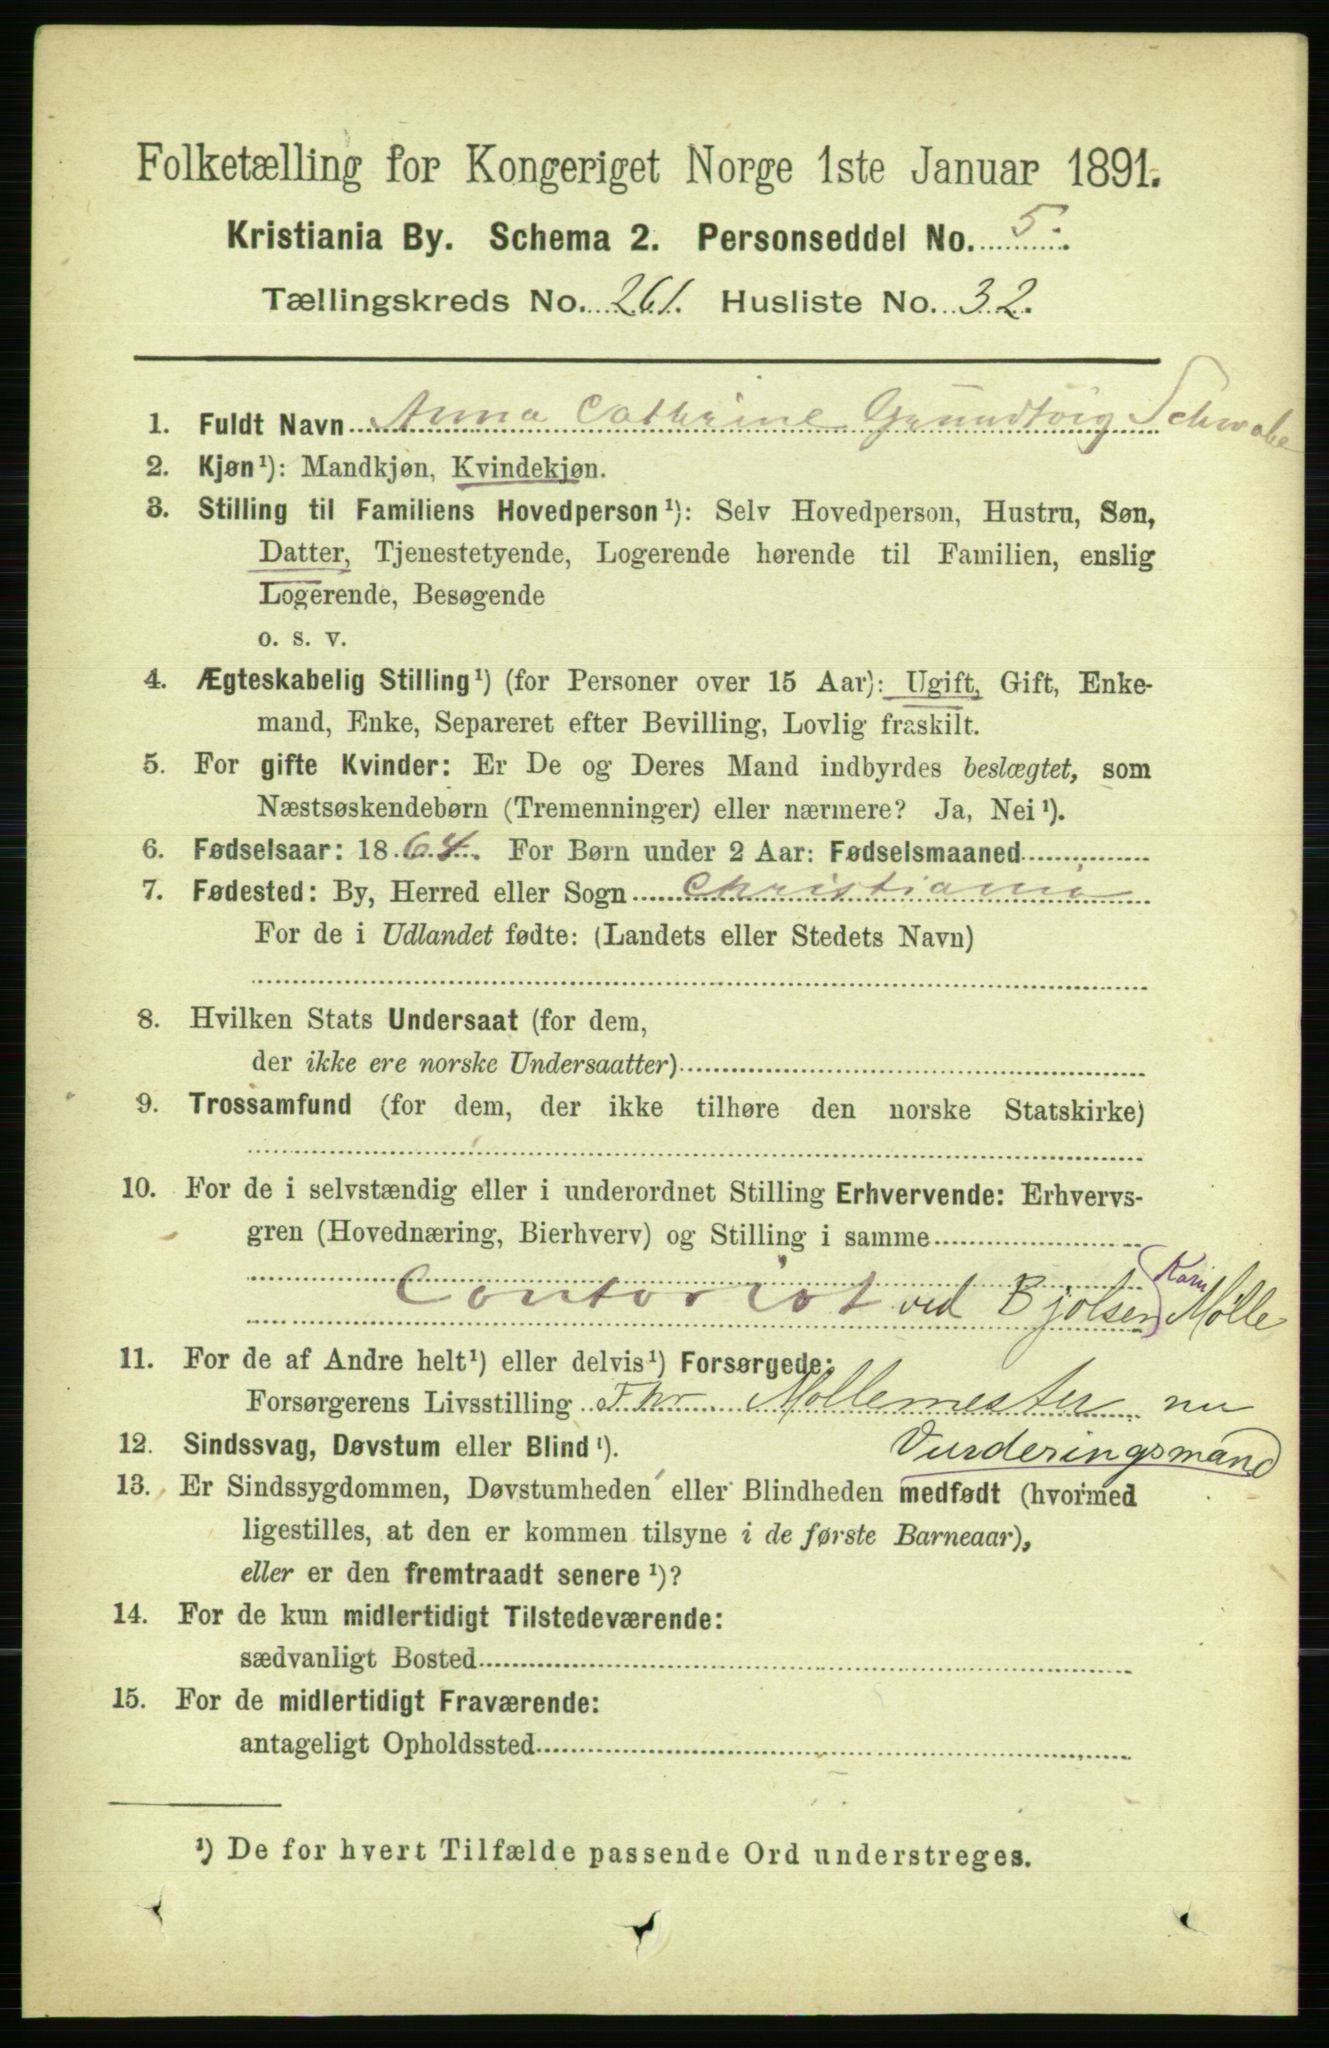 Folketælling for Kongeriget Norge 1ste Januar 1891.
Kristiania By. Schema 2. Personseddel No. 5.
Tællingskreds No. 261. Husliste No. 32.
1. Fuldt Navn Anna Cathrine Grundtvig Schwabe
2. Kjøn¹): Mandkjøn, Kvindekjøn.
3. Stilling til Familiens Hovedperson¹): Selv Hovedperson, Hustru, Søn,
Datter, Tjenestetyende, Logerende hørende til Familien, enslig
Logerende, Besøgende
o. s. v.
4. Ægteskabelig Stilling¹) (for Personer over 15 Aar): Ugift, Gift, Enke-
mand, Enke, Separeret efter Bevilling, Lovlig fraskilt.
5. For gifte Kvinder: Er De og Deres Mand indbyrdes beslægtet, som
Næstsøskendebørn (Tremenninger) eller nærmere? Ja, Nei¹).
6. Fødselsaar: 1864. For Børn under 2 Aar: Fødselsmaaned
7. Fødested: By, Herred eller Sogn Christiania
For de i Udlandet fødte: (Landets eller Stedets Navn)
8. Hvilken Stats Undersaat (for dem,
der ikke ere norske Undersaatter)
9. Trossamfund (for dem, der ikke tilhøre den norske Statskirke)
10. For de i selvstændig eller i underordnet Stilling Erhvervende: Erhvervs-
gren (Hovednæring, Bierhverv) og Stilling i samme
Korn
Contorist ved Bjølsen Mølle
11. For de af Andre helt¹) eller delvis¹) Forsørgede:
Forsørgerens Livsstilling Fhv. Møllemester nu
Vurderingsmand
12. Sindssvag, Døvstum eller Blind¹).
13. Er Sindssygdommen, Døvstumheden eller Blindheden medfødt (hvormed
ligestilles, at den er kommen tilsyne i de første Barneaar),
eller er den fremtraadt senere¹)?
14. For de kun midlertidigt Tilstedeværende:
sædvanligt Bosted
15. For de midlertidigt Fraværende:
antageligt Opholdssted
¹) De for hvert Tilfælde passende Ord understreges.